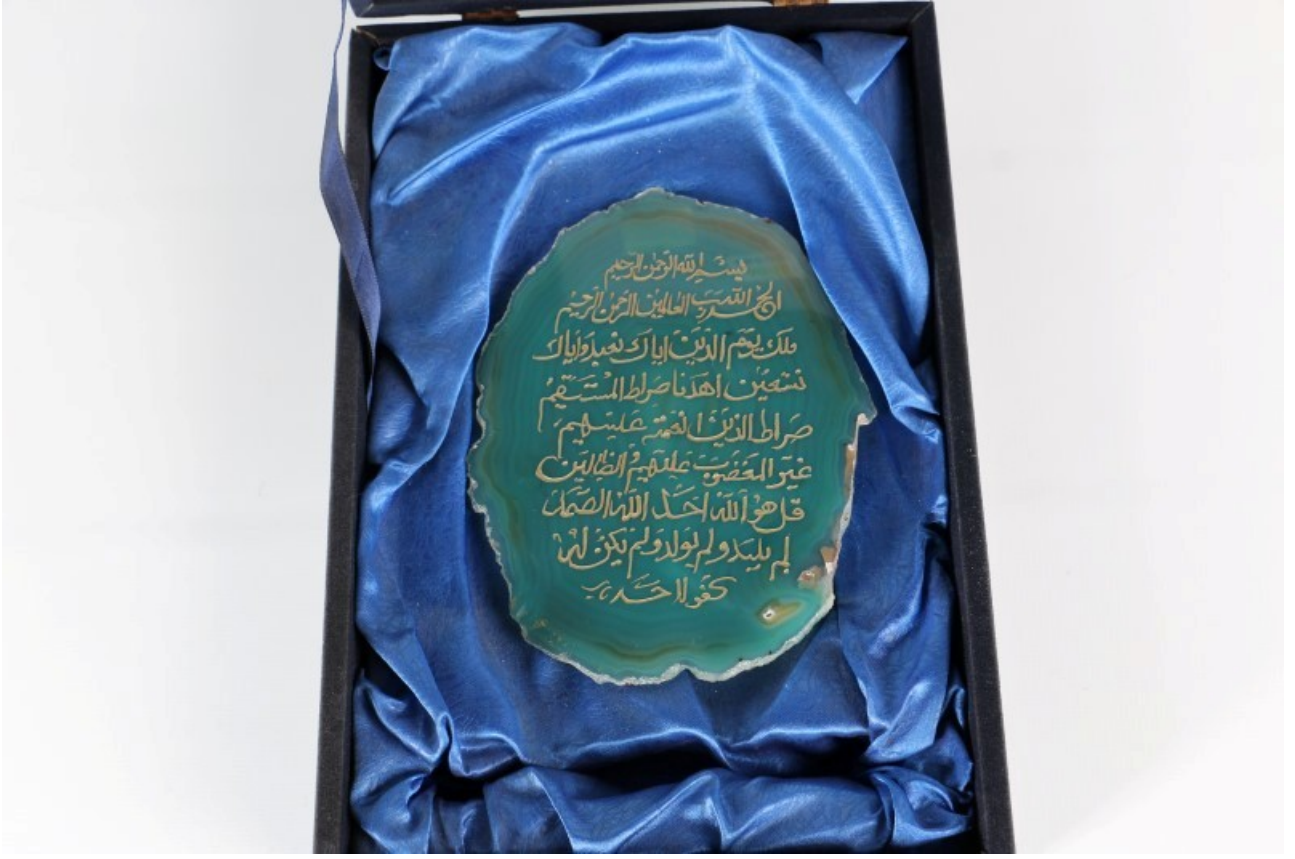 بسم الله الرحمن الرحيم
الحمد لله رب العالمين الرحمن الرحيم
ملك يوم الدين اياك نعبد واياك
نستعين اهدنا صراط المستقيم
صراط الذين انعمته عليهم
غير المغضوب عليهم و الضالين
قل هو الله احد الله الصمد
لم يليد ولم يولد ولم يكن له
كفولا حد